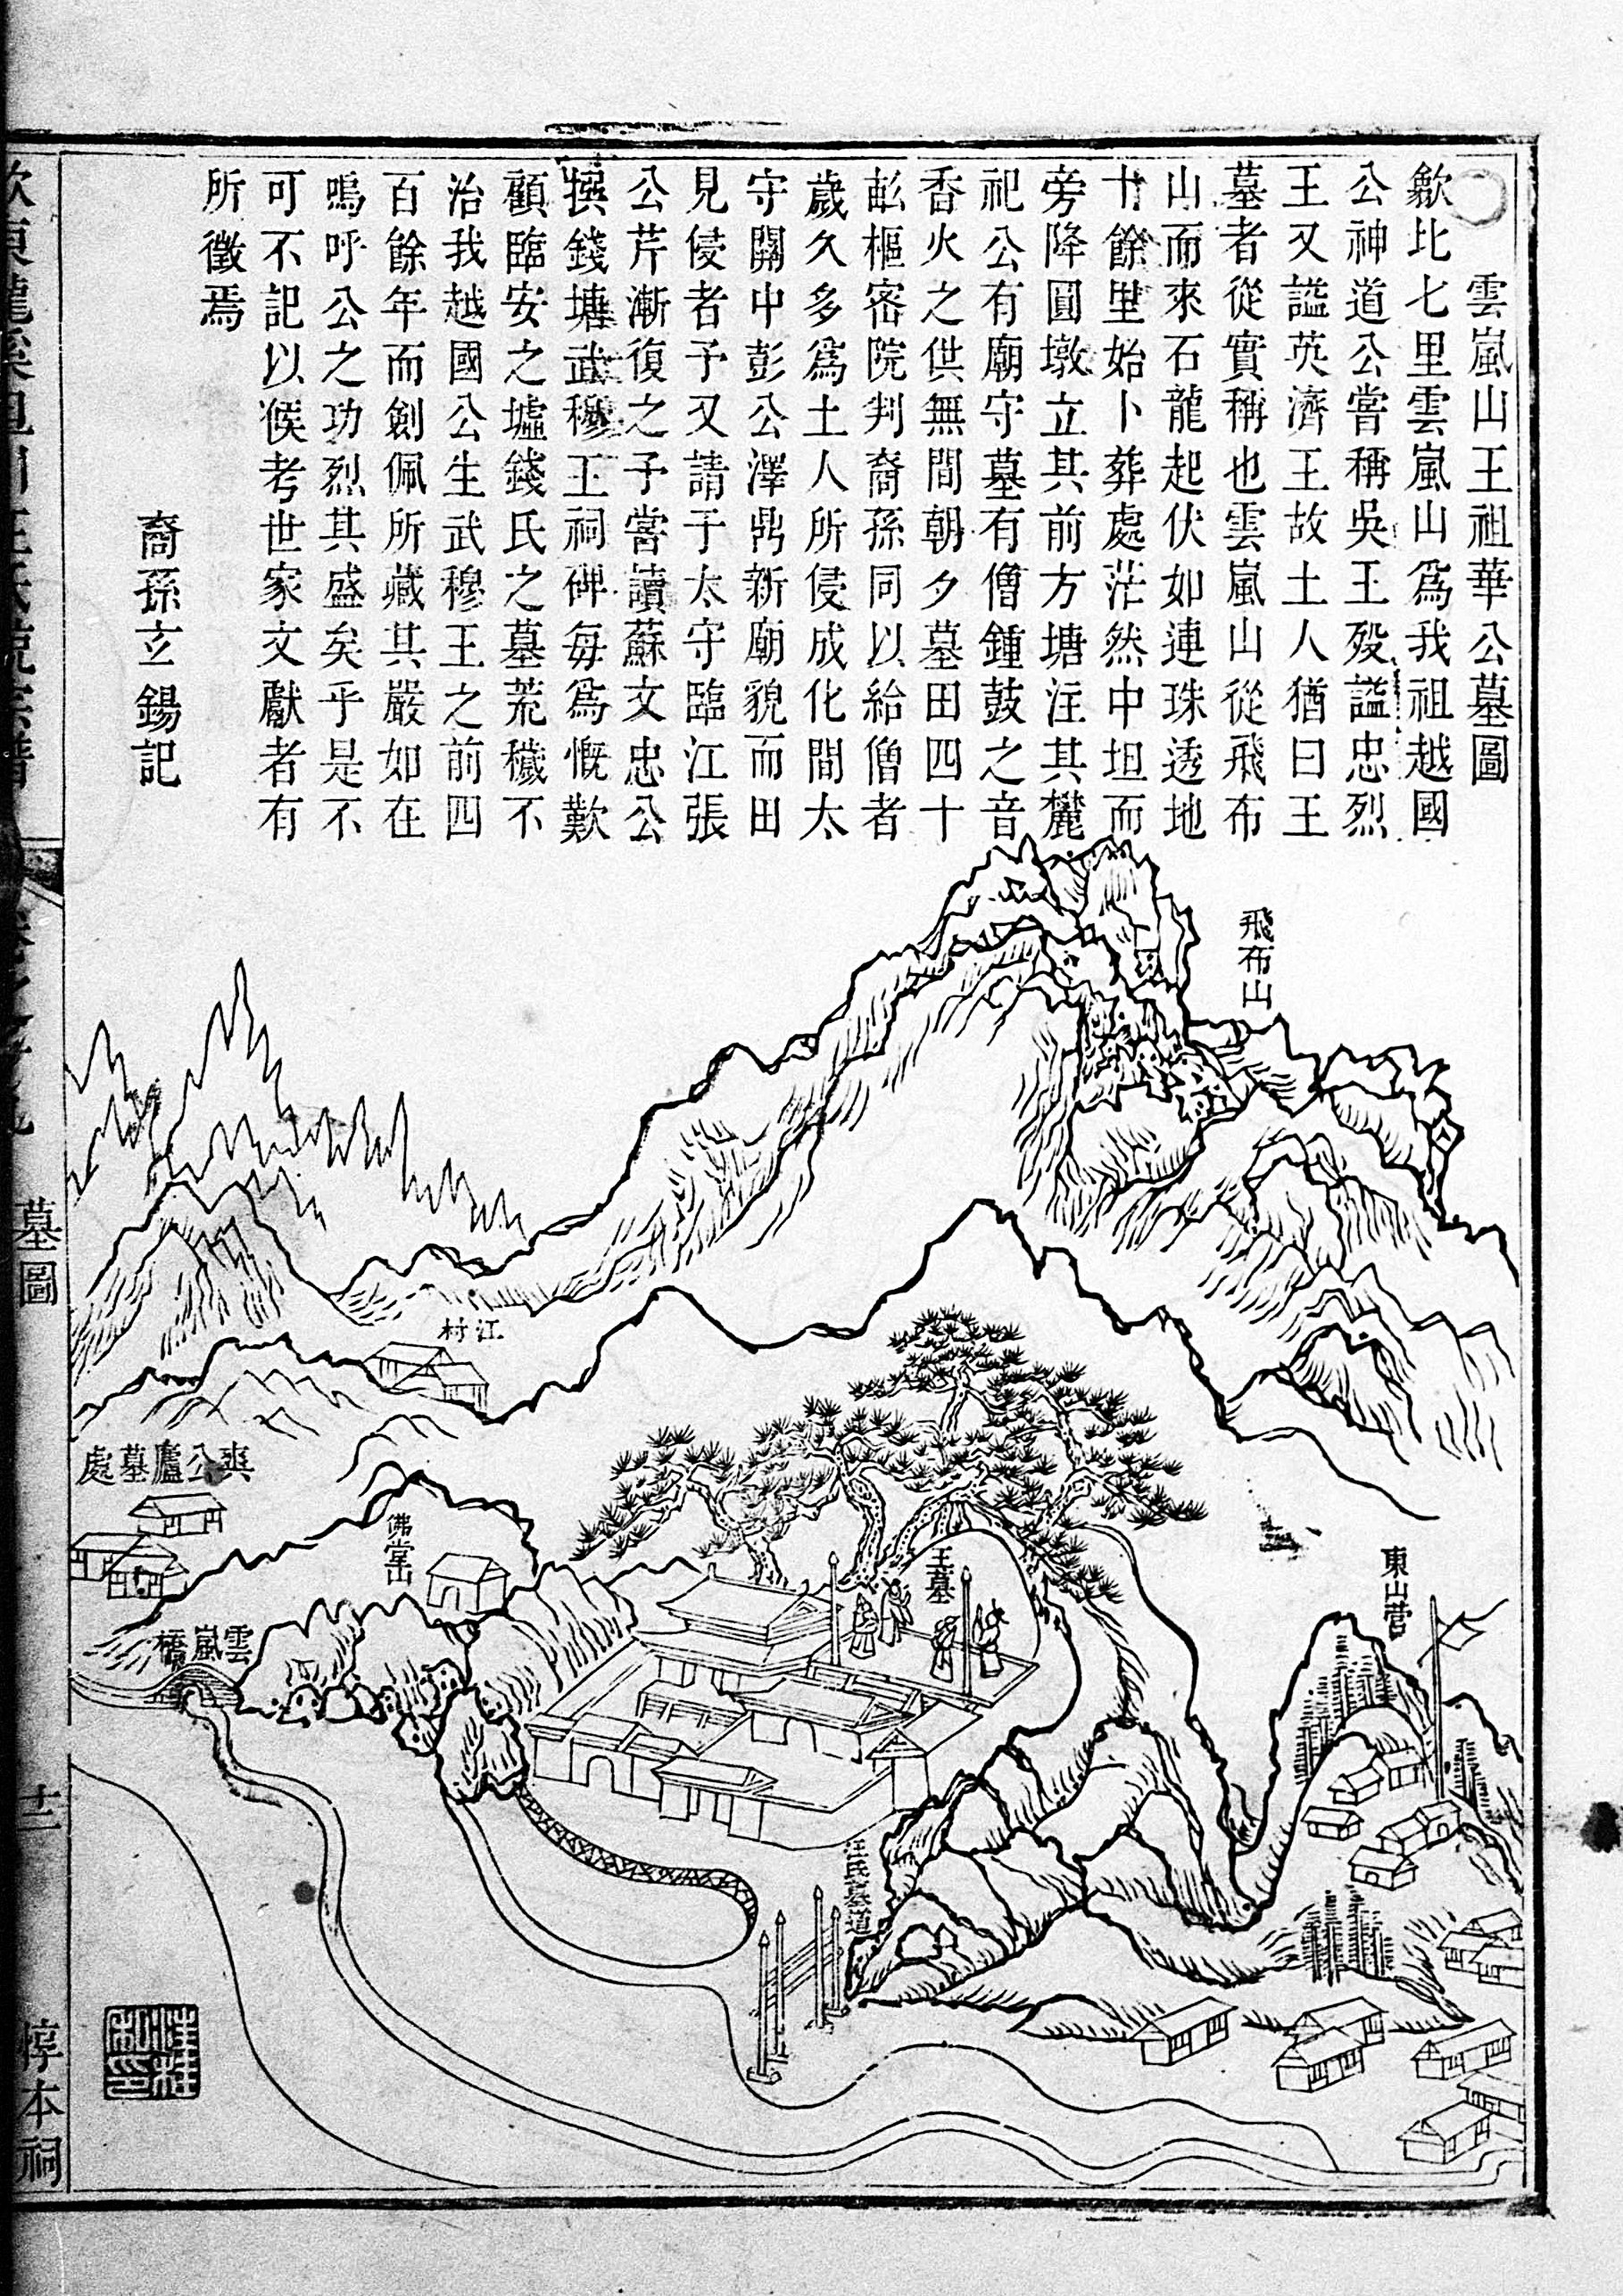 雲嵐山王祖華公墓圖
歙北七里雲嵐山為我祖越國
公神道公嘗稱吳王歿謚忠烈
王又謚英濟王故土人猶曰王
墓者從實稱也雲嵐山從飛布
山而來石龍起伏如連珠透地
十餘里始卜葬處茫然中坦而
旁降圓墩立其前方塘注其麓
祀公有廟守墓有僧鍾鼓之音
香火之供無間朝夕墓田四十
畝樞密院判裔孫同以給僧者
歲久多為土人所侵成化間太
守關中彭公澤鼎新廟貌而田
見侵者予又請于太守臨江張
公芹漸復之予嘗讀蘇文忠公
撰錢塘武穆王祠碑每為慨歎
顧臨安之墟錢氏之墓荒穢不
治我越國公生武穆王之前四
百餘年而創佩所藏其嚴如在
嗚呼公之功烈其盛矣乎是不
可不記以俟考世家文獻者有
所徵焉
裔孫玄錫記
飛布山
江村
爽公廬墓處
佛堂山
雲嵐橋
王墓
東山營
汪氏墓道
墓圖
十二
惇本祠